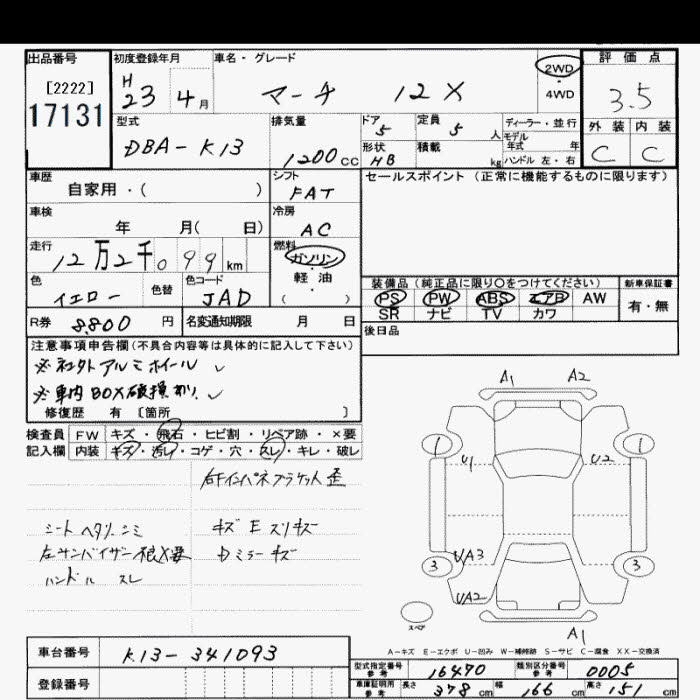 出品番号 初度登録年月 車名・グレード 2WD 評価点
[2222] H
23 4月 マーチ 12X ・4WD 3.5
17131 型式 排気量 ドア 定員 ディーラー・並行 外装 内装
DBA-K13 1200cc 5 5人 モデル年式 年 C C
形状 HB 積載 kg ハンドル 左・右
車歴 シフト セールスポイント(正常に機能するものに限ります)
自家用・( ) FAT
車検 冷房
年 月( 日) AC
走行 燃料
12万2千099km ガソリン
色 色替 色コード 軽油
イエロー JAD ( )
装備品(純正品に限り○をつけてください) 新車保証書
PS PW ABS エアB AW 有・無
SR ナビ TV カワ
R券 8,800円 名変通知期限 月 日 後日品
注意事項申告欄(不具合内容等は具体的に記入して下さい)
※社外アルミホイール ✓
※車内BOX破損有り ✓
修復歴 有 〔箇所 〕
検査員 FW キズ・飛石・ヒビ割・リペア跡・×要
記入欄 内装 キズ・汚レ・コゲ・穴・スレ・キレ・破レ
右Fインパネブラケット歪
シートヘタリ、シミ キズE スリキズ
左サンバイザー根X要 Dミラーキズ
ハンドル スレ
A1 A2
1 1
U1 U2
3 UA3 3
UA2
スペア A1
A-キズ E-エクボ U-凹み W-補修跡 S-サビ C-腐食 XX-交換済
車台番号 K13-341093
型式指定番号 参考 16470 類別区分番号 参考 0005
登録番号 車庫証明用 参考 長さ 378cm 幅 166cm 高さ 151cm